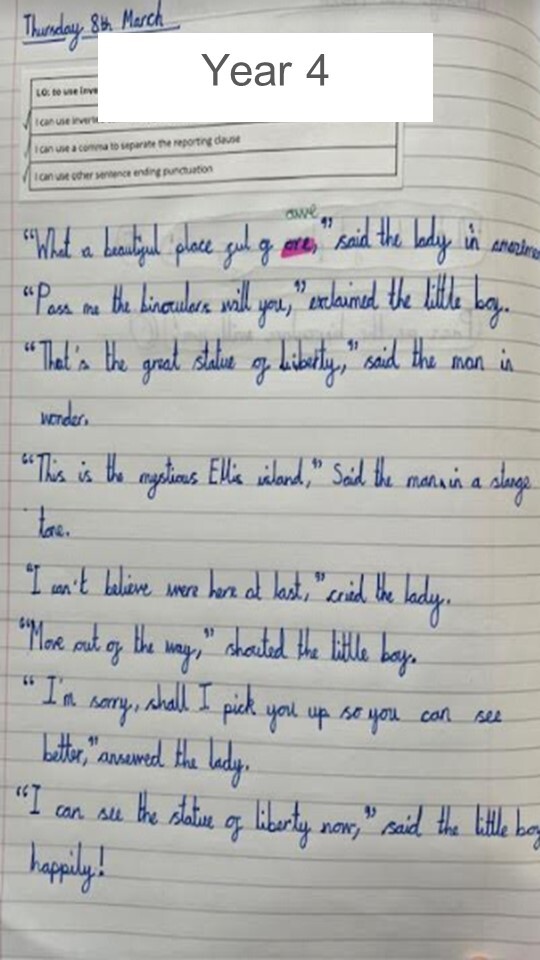 Thursday 8th March
Year 4
LO: to use inve
I can use inverte
I can use a comma to separate the reporting clause
I can use other sentence ending punctuation
awe
"What a beautiful place ful of ore," said the lady in
"Pass me the binoculars will you," exclaimed the little boy.
"That's the great statue of Liberty," said the man in
wonder.
"This is the mystious Ellis island," Said the man in a stange
tone.
"I can't believe were here at last," cried the lady.
"Move out of the way," shouted the little boy.
"I'm sorry, shall I pick you up so you can see
better," answered the lady.
"I can see the statue of liberty now," said the little boy
happily!